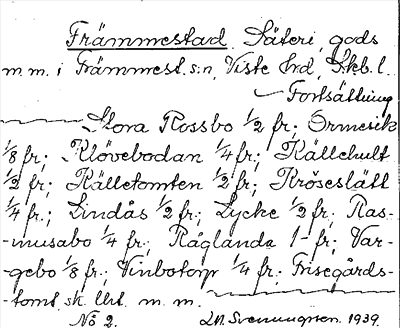 Främmestad. Säteri, gods
m.m. i Främmest. s:n, Viste hrd, Skb. l.
Fortsättning
Stora Rossbo 1/2 fr.; Ormevik
1/8 fr.; Klövebodan 1/4 fr.; Källehult
1/2 fr.; Källetomten 1/2 fr.; Kröseslätt
1/4 fr.; Lindås 1/2 fr.; Lycke 1/2 fr.; Ras-
-musabo 1/4 fr.; Råglanda 1 fr.; Var-
-gebo 1/8 fr.; Vinbotorp 1/4 fr.; Frisegårds-
-tomt, sk. lht. m. m.
No 2. Svenungsson. 1939.